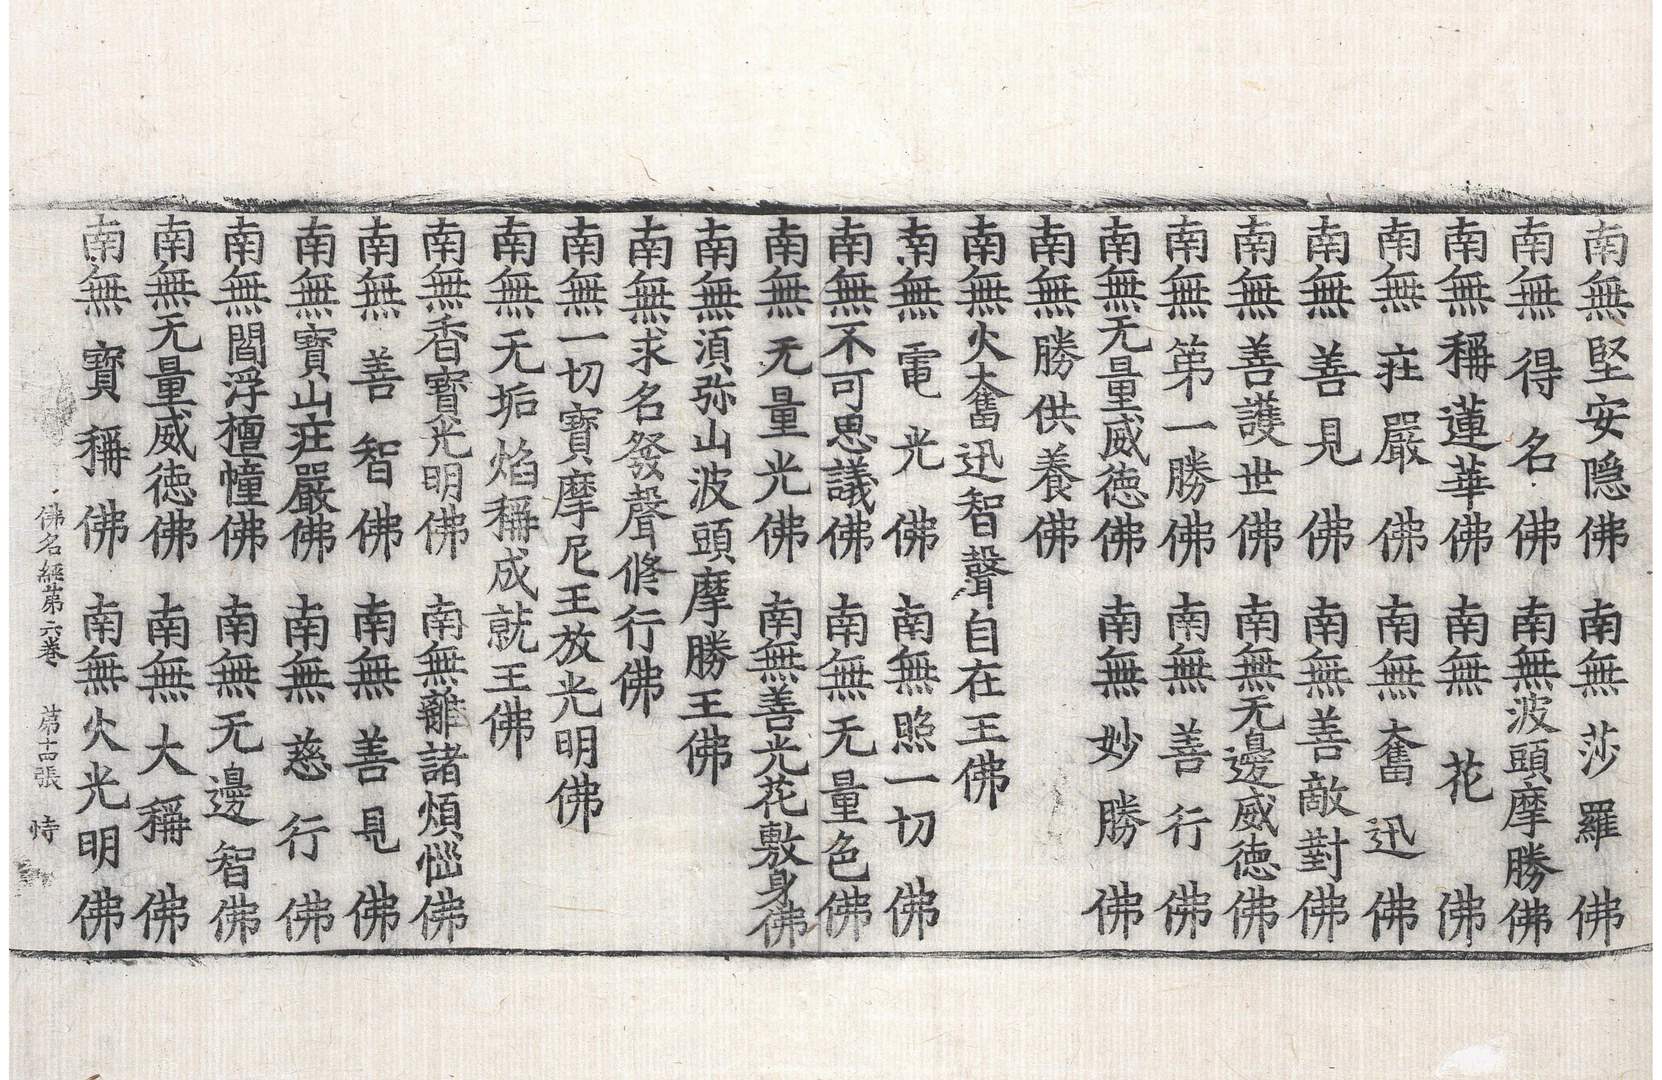 南無堅安隱佛 南無莎羅佛
南無得名佛 南無波頭摩勝佛
南無稱蓮華佛 南無花佛
南無疘嚴佛 南無奮迅佛
南無善見佛 南無善敵對佛
南無善護世佛 南無无邊威徳佛
南無第一勝佛 南無善行佛
南無无量威徳佛 南無妙勝佛
南無勝供養佛
南無火奮迅智聲自在王佛
南無電光佛 南無照一切佛
南無不可思議佛 南無无量色佛
南無无量光佛 南無善光花敷身佛
南無湏弥山波頭摩勝王佛
南無求名發聲修行佛
南無一切寶摩尼王放光明佛
南無无垢焰稱成就王佛
南無香寶光明佛 南無離諸煩惱佛
南無善智佛 南無善見佛
南無寶山疘嚴佛 南無慈行佛
南無閻浮檀幢佛 南無无邊智佛
南無无量威徳佛 南無大稱佛
南無寶稱佛 南無火光明佛
佛名經第六卷 第十四張 恃